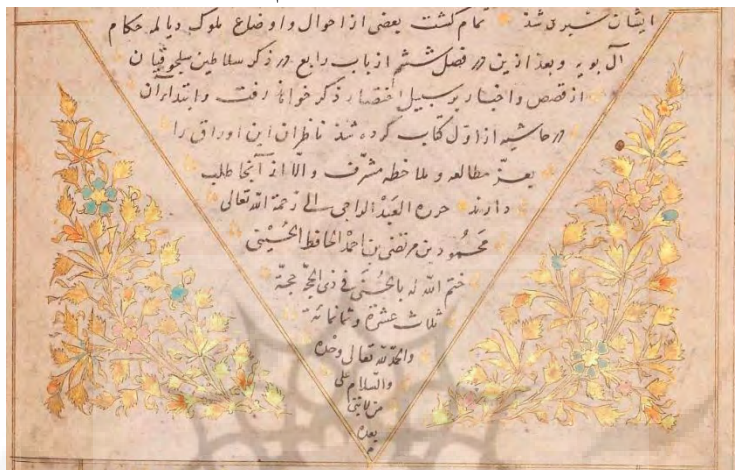 ایشان سپری شد تمام گشت بعضی از احوال و اوضاع ملوک دیالمه حکام
آل بویه و بعد ازین در فصل ششم از باب رابع در ذکر سلاطین سلجوقیان
از قصص و اخبار بر سبیل اختصار ذکر خواهد رفت و ابتدا از آن
در حاشیه از اول کتاب کرده شد ناظران این اوراق را
بعز مطالعه و ملاحظه مشرف و الا از آنجا طلب
دارند حرره العبد الراجی الی رحمة الله تعالی
محمود بن مرتضی بن احمد الحافظ الحسینی
ختم الله له بالحسنی فی ذی الحجة حجة
ثلاث عشرة و ثمانمائة
والحمد لله تعالی وحده
والسلام علی
من لا نبی
بعده